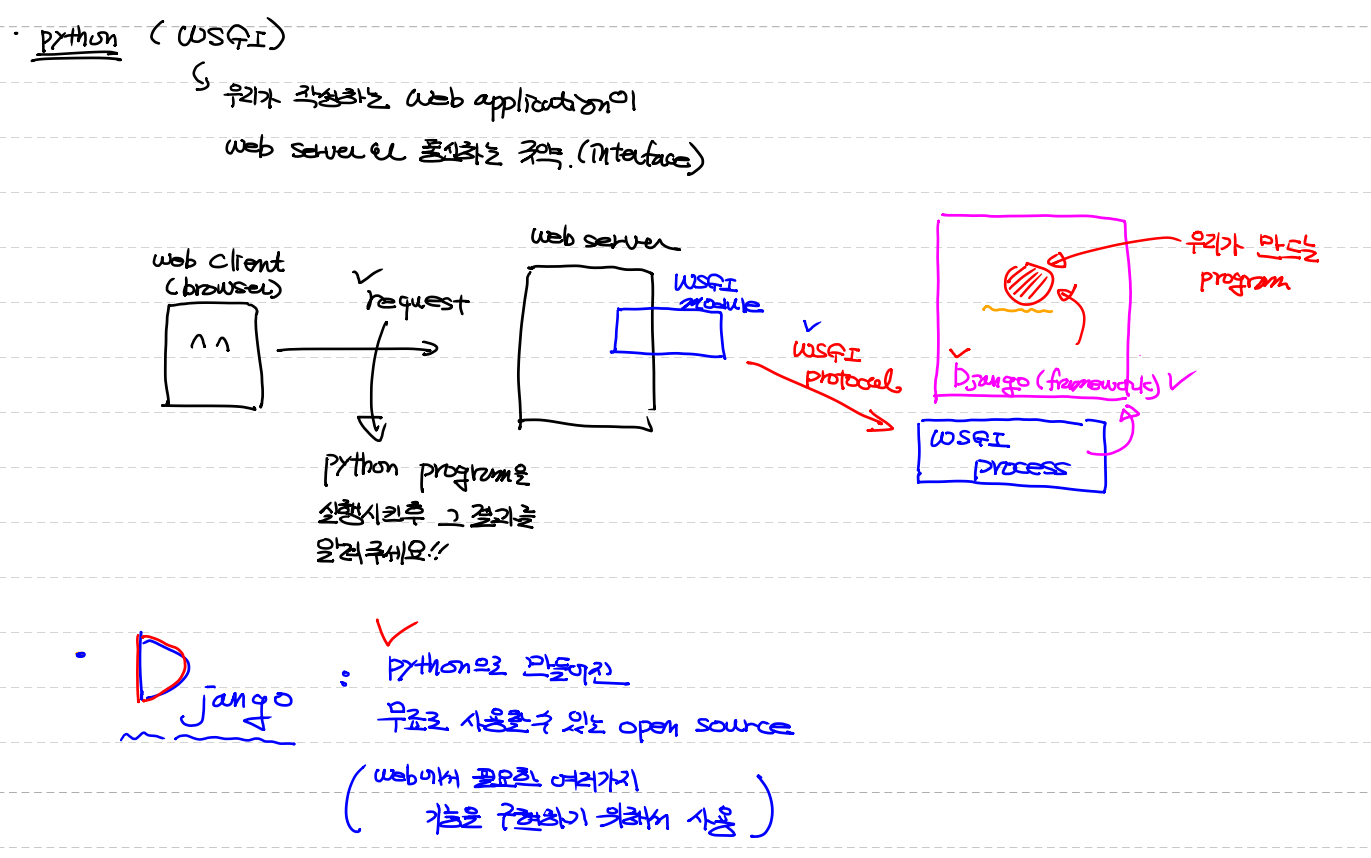 · python (WSGI)
우리가 작성하는 web application이
web server와 통신하는 규약.(interface)
web client
(browser)
request
web server
WSGI
module
WSGI
protocol
우리가 만드는
program
Django (framework)
WSGI
process
python program을
실행시킨후 그 결과를
알려주세요!!
· Django : python으로 만들어진
무료로 사용할수 있는 open source
(web에서 필요한 여러가지
기능을 구현하기 위해서 사용)